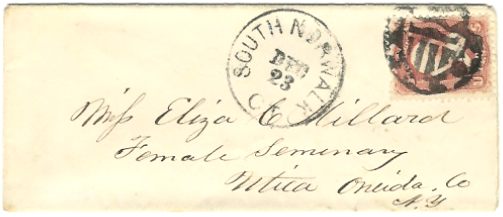 SOUTH NORWALK
DEC
23
Miss Eliza C Millard
Female Seminary
Utica Oneida. Co
N.Y